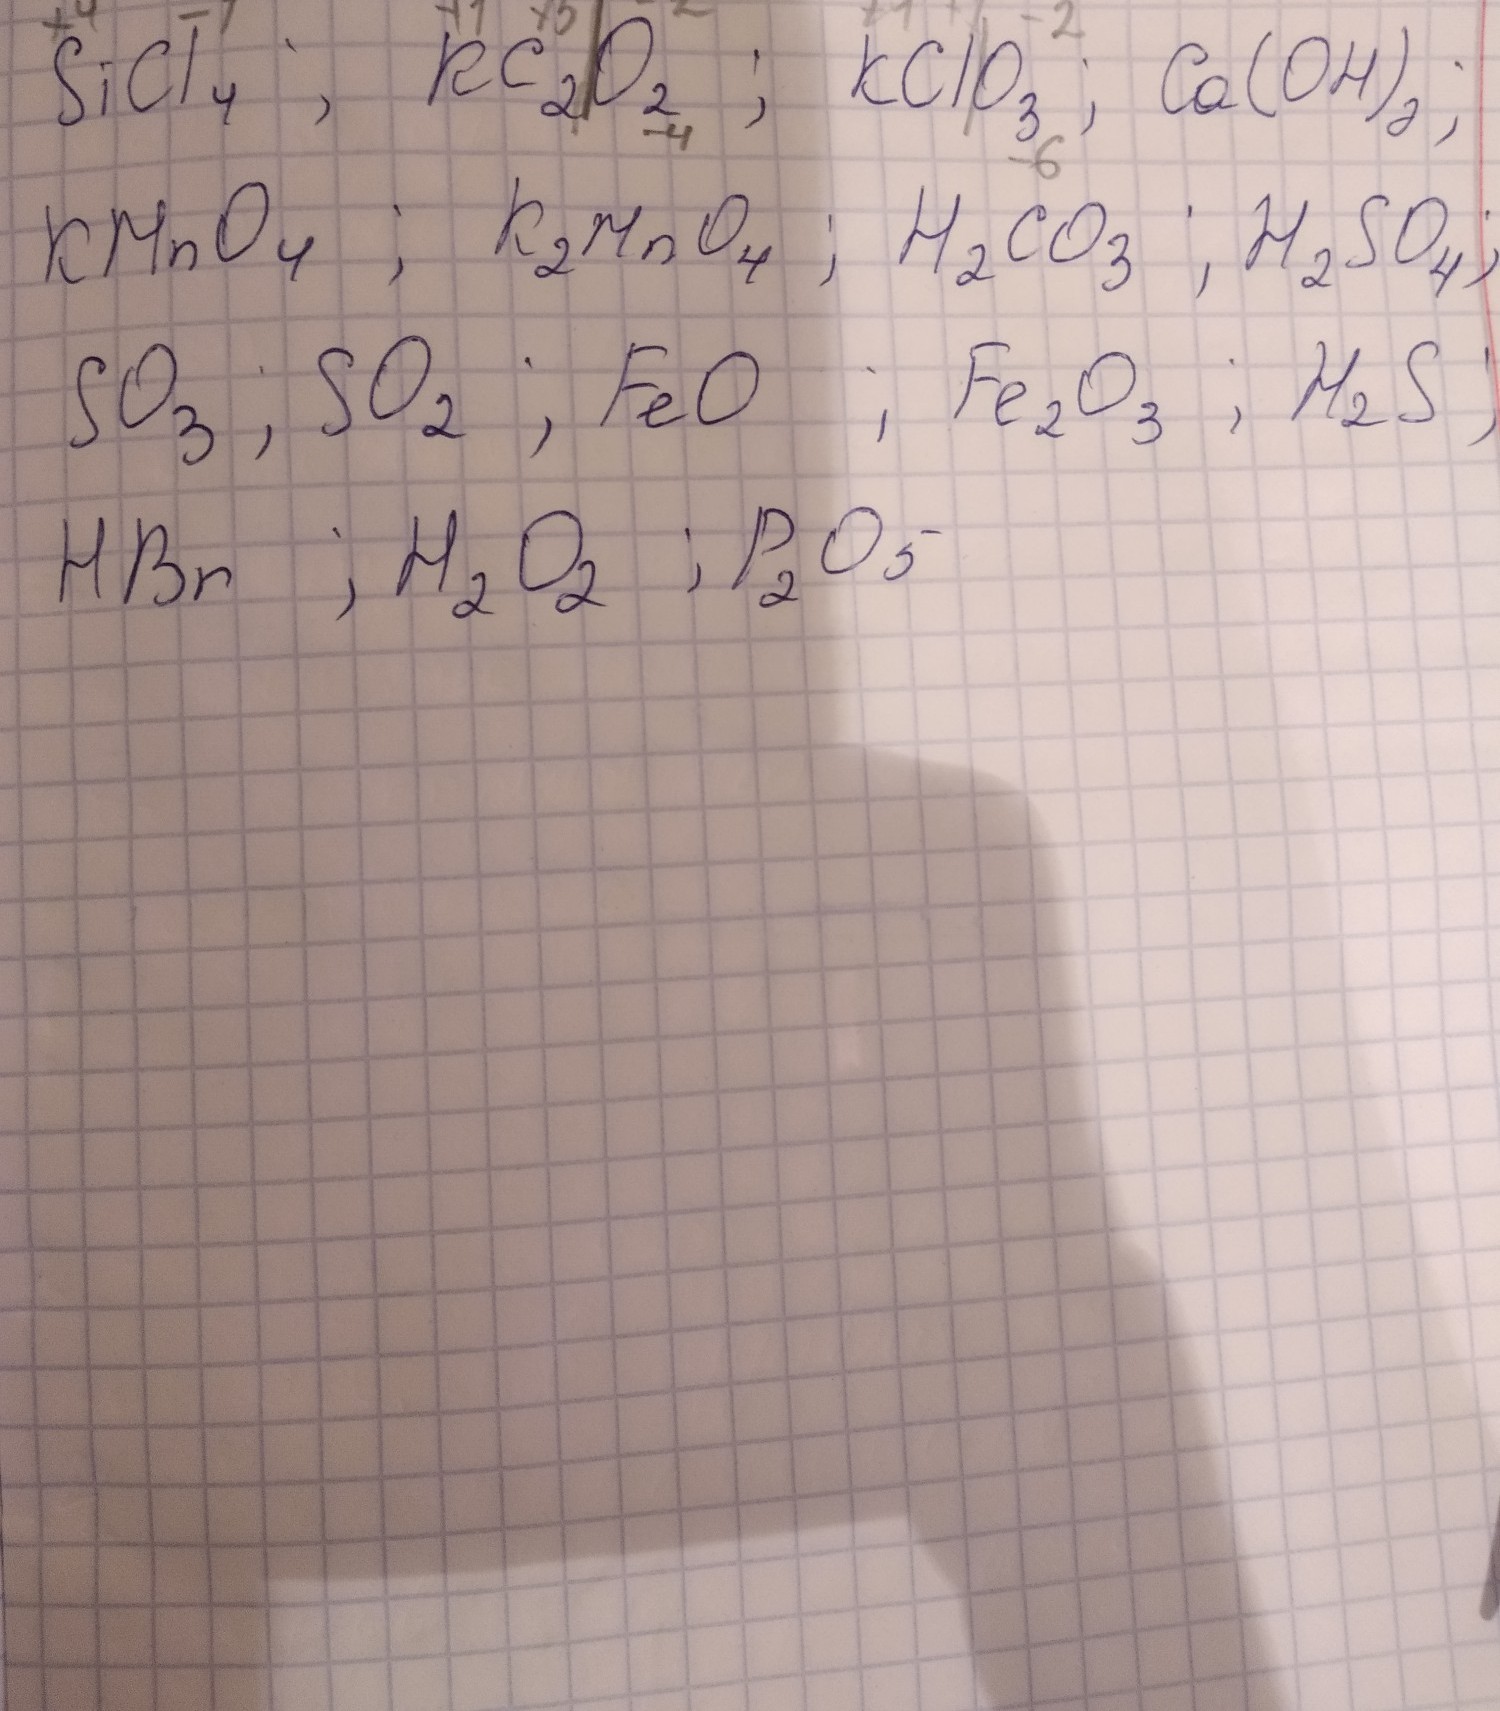 +4 -1 +1 +5 -2 +1 -2
SiCl₄ ; KC₂O₂ ; KClO₃ ; Ca(OH)₂ ;
-4 -6
KMnO₄ ; K₂MnO₄ ; H₂CO₃ ; H₂SO₄ ;
SO₃ ; SO₂ ; FeO ; Fe₂O₃ ; H₂S ;
HBr ; H₂O₂ ; P₂O₅